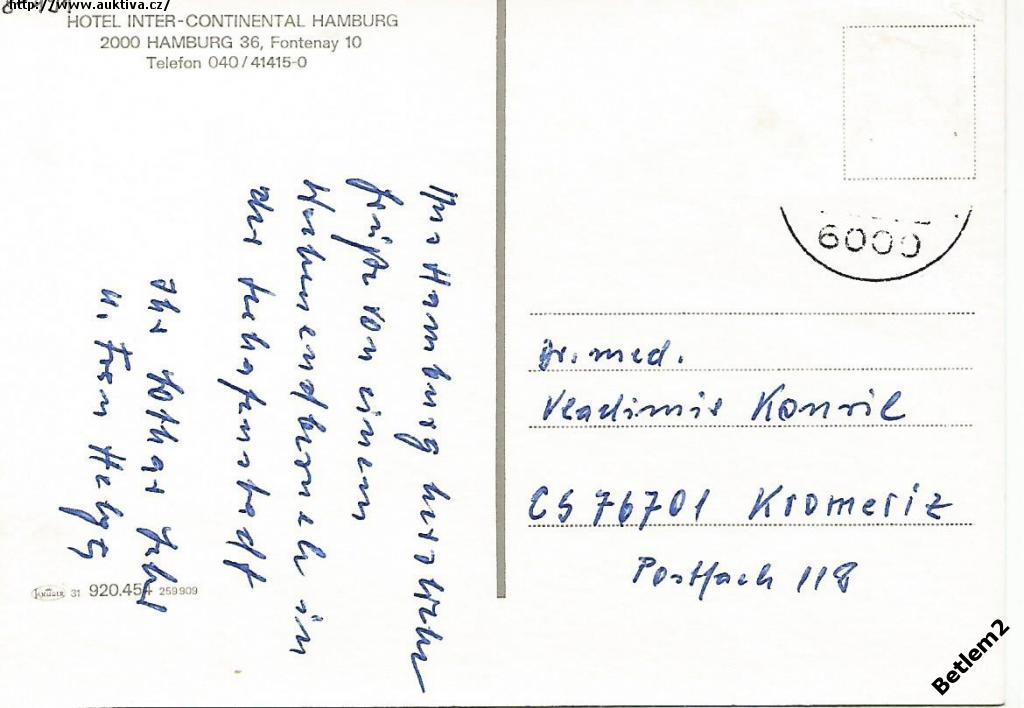 http://www.auktiva.cz/
HOTEL INTER-CONTINENTAL HAMBURG
2000 HAMBURG 36, Fontenay 10
Telefon 040/41415-0
Aus Hamburg herzliche
Grüße von einem
Wochenendbesuch in
der Hafenstadt
Ihr Lothar
u. Frau
6000
Dr. med.
Vladimir Konvil
CS 76701 Kromeriz
Postfach 118
31 920.454 259909
Betlem2